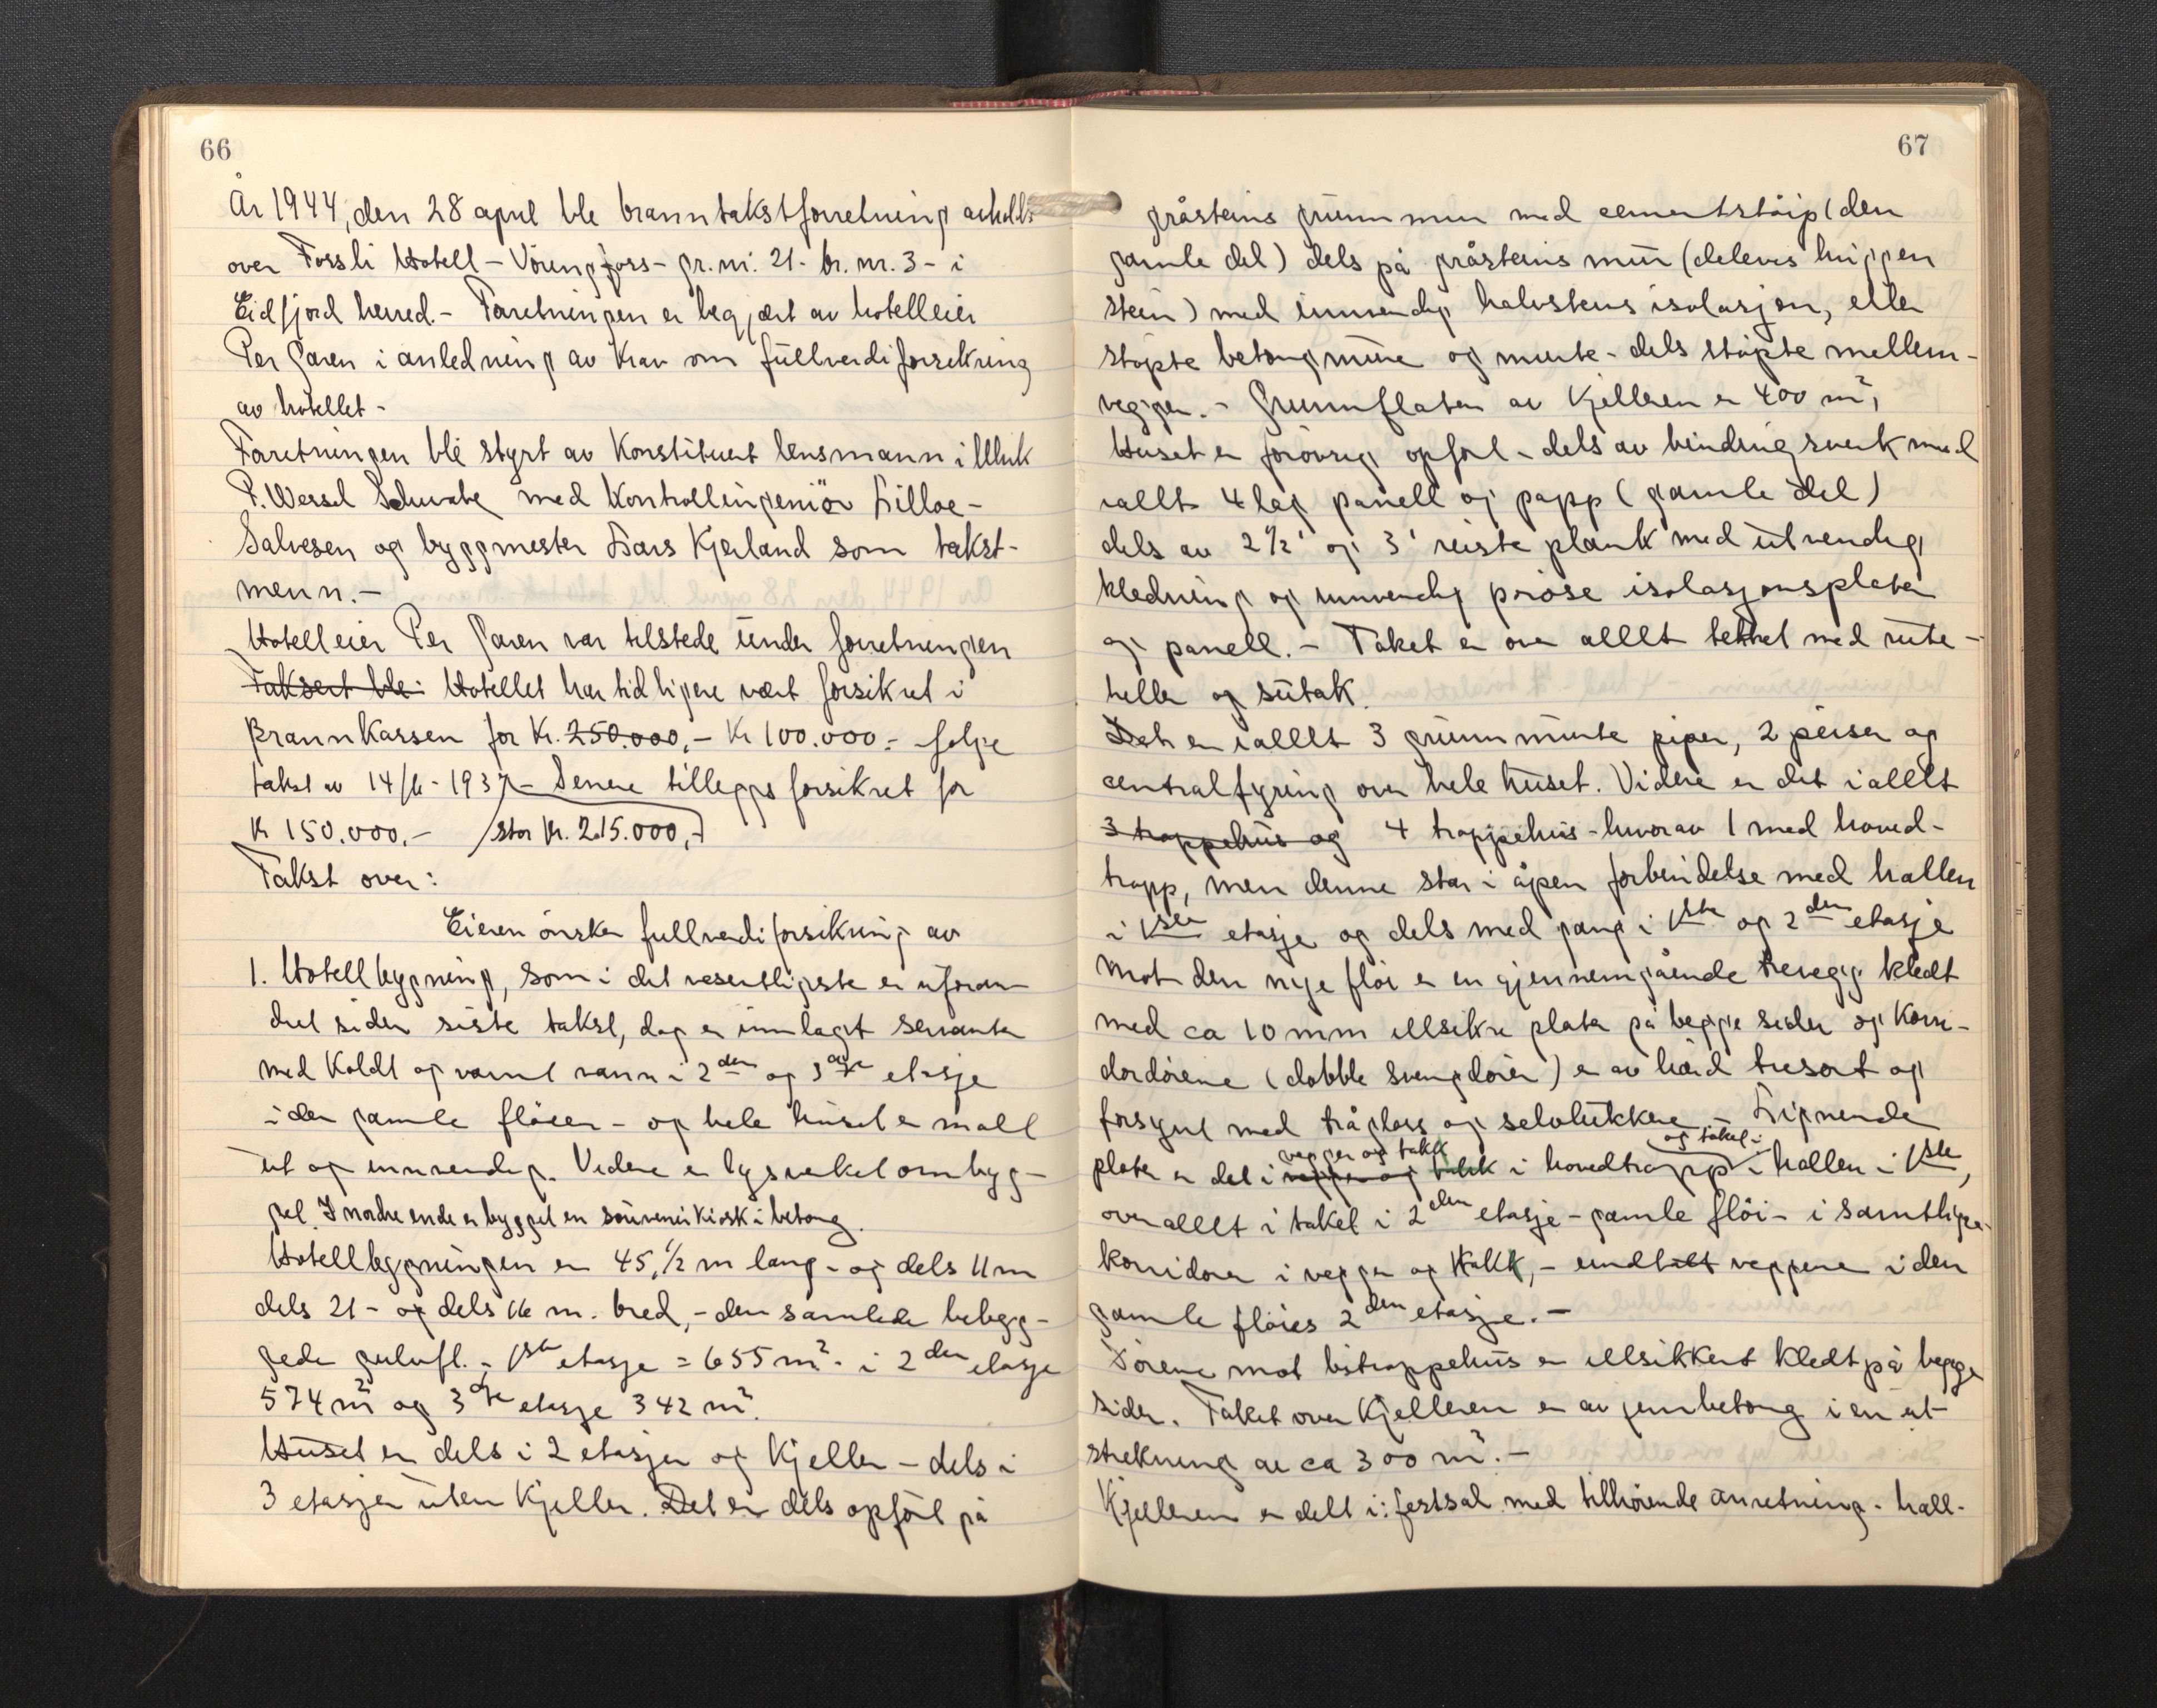 66
År 1944, den 28 april ble branntakstforretning avholdt
over Fossli Hotell - Vöringfoss - gr. nr. 21 - br. nr. 3 - i
Eidfjord herred. - Forretningen er begjært av hotelleier
Per Garen i anledning av krav om fullverdiforsikring
av hotellet -
Forretningen ble styrt av konstituert lensmann i Ulvik
P. Wessel Schwabe med Kontrollingeniör Lilloe-
Salvesen og byggmester Lars Kjerland som takst-
menn. -
Hotelleier Per Garen var tilstede under forretningen
Taksert ble: Hotellet har tidligere vært forsikret i
Brannkassen for Kr. 250.000,- Kr 100.000.- følge
takst av 14/6 - 1937 - Senere tilleggsforsikret for
Kr 150.000,- stor Kr. 215.000,-
Takst over:
Eieren önsker fullverdiforsikring av
1. Hotellbygning, som i det vesentligste er uforan-
dret siden siste takst, dog er innlagt servanter
med koldt og varmt vann i 2den og 3dje etasje
i den gamle flöien - og hele huset er malt
ut og innvendig. Videre er lysverket ombyg-
get. I nordre ende er bygget en souvenirkiosk i betong.
Hotellbygningen er 45,1/2 m lang - og dels 11 m
dels 21 - og dels 16 m. bred, - den samlede bebygg-
gede gulvfl. i 1ste etasje = 655 m2 - i 2den etasje
574 m2 og 3dje etasje 342 m2.
Huset er dels i 2 etasjer og Kjeller - dels i
3 etasjer uten Kjeller. Det er dels opfört på
67
gråsteins grunnmur med cementstöip (den
gamle del) dels på gråsteins mur (delevis huggen
stein) med innvendig halvstens isolasjon, eller
stöpte betongmure og murte - dels stöpte mellem-
vegger. - Grunnflaten av Kjelleren er 400 m2,
Huset er forövrig opfört - dels av bindingsverk med
iallt 4 lag panell og papp (gamle del)
dels av 2 1/2' og 3' reiste plank med utvendig
kledning og innvendig poröse isolasjonsplater
og panell. - Taket er over alllt tekket med rute-
heller og sutak.
Det er iallt 3 grunnmurte piper, 2 peiser og
centralfyring over hele huset. Videre er det iallt
3 trappehus og 4 trappehus - hvorav 1 med hoved-
trapp, men denne står i åpen forbindelse med hallen
i 1ste etasje og dels med gang i 1ste og 2den etasje
Mot den nye flöi er en gjennemgående trevegg kledt
med ca 10 mm illsikre plater på begge sider og korri-
dordörene (dobble svingdörer) er av hård tresort og
forsynt med trågloss og selvlukkere - Lignende
vegger og takk og taket i
plater er det i vegger og takk i hovedtrapp i hallen i 1ste,
over alllt i taket i 2den etasje - gamle flöi - i samtlige
korridorer i vegger og takk, - undtatt veggene i den
gamle flöies 2den etasje. -
Dörene mot bitrappehus er illsikkert kledt på begge
sider. Taket over Kjelleren er av jernbetong i en ut-
strekning av ca 300 m2. -
Kjelleren er delt i: festsal med tilhörende anretning - hall-